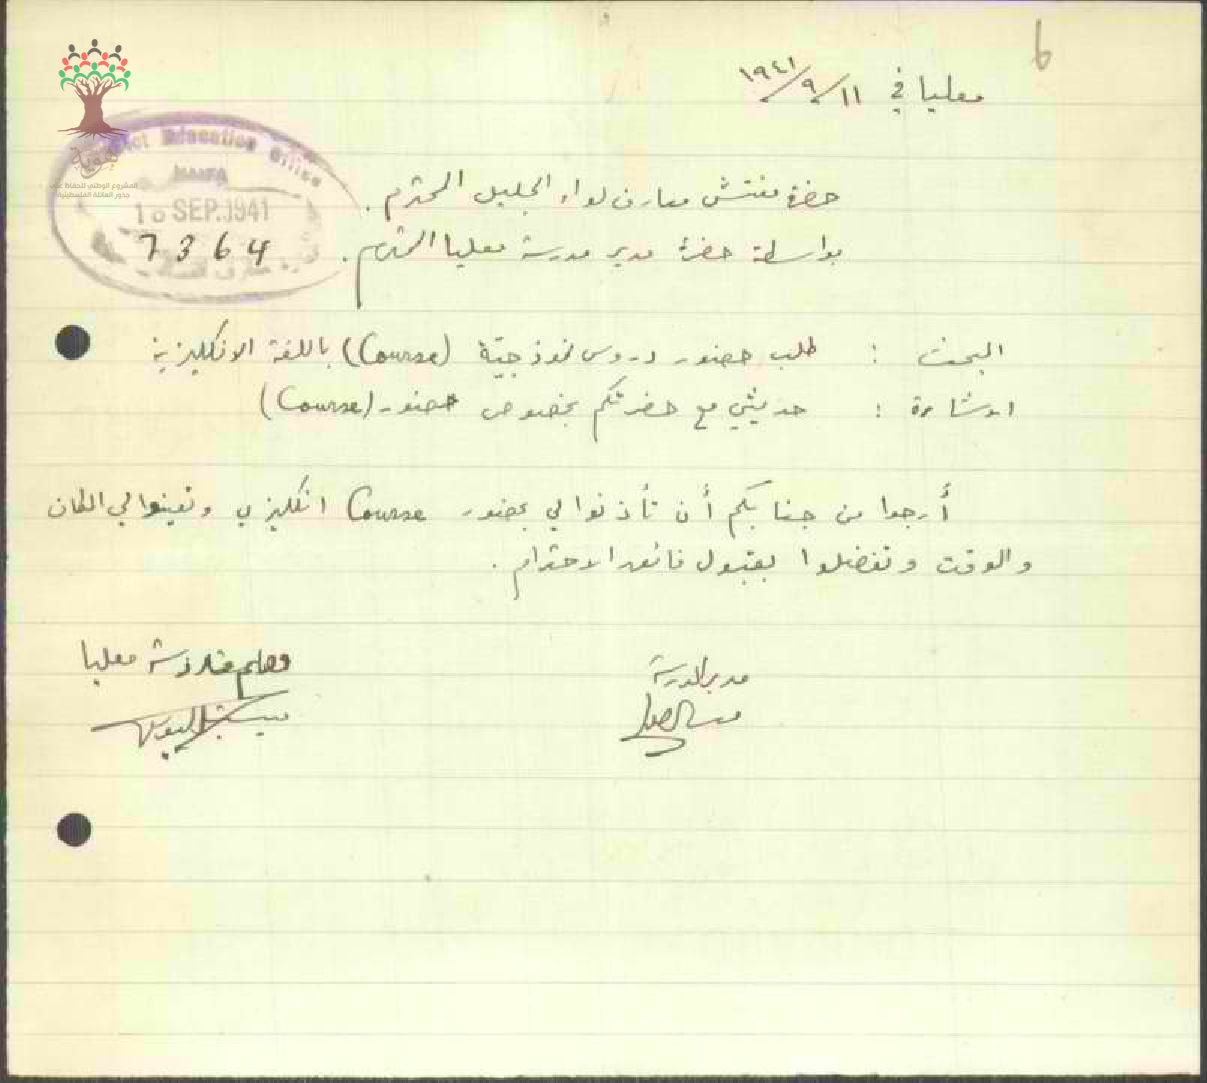 6
معليا في ١١/٩/١٩٤١
District Education Office
HAIFA
10 SEP. 1941
7364
هوية
المشروع الوطني للحفاظ على
جذور العائلة الفلسطينية
حضرة مفتش معارف لواء الجليل المحترم .
بواسطة حضرة مدير مدرسة معليا المحترم .
البحث : طلب حضور دروس نموذجيّة (Course) باللغة الانكليزية
الاشارة : حديثي مع حضرتكم بخصوص حضور (Course)
أرجوا من جنابكم أن تأذنوا لي بحضور Course انكليزي وتعينوا لي المكان
والوقت وتفضلوا بقبول فائق الاحترام .
مدير المدرسة
معلم مدرسة معليا